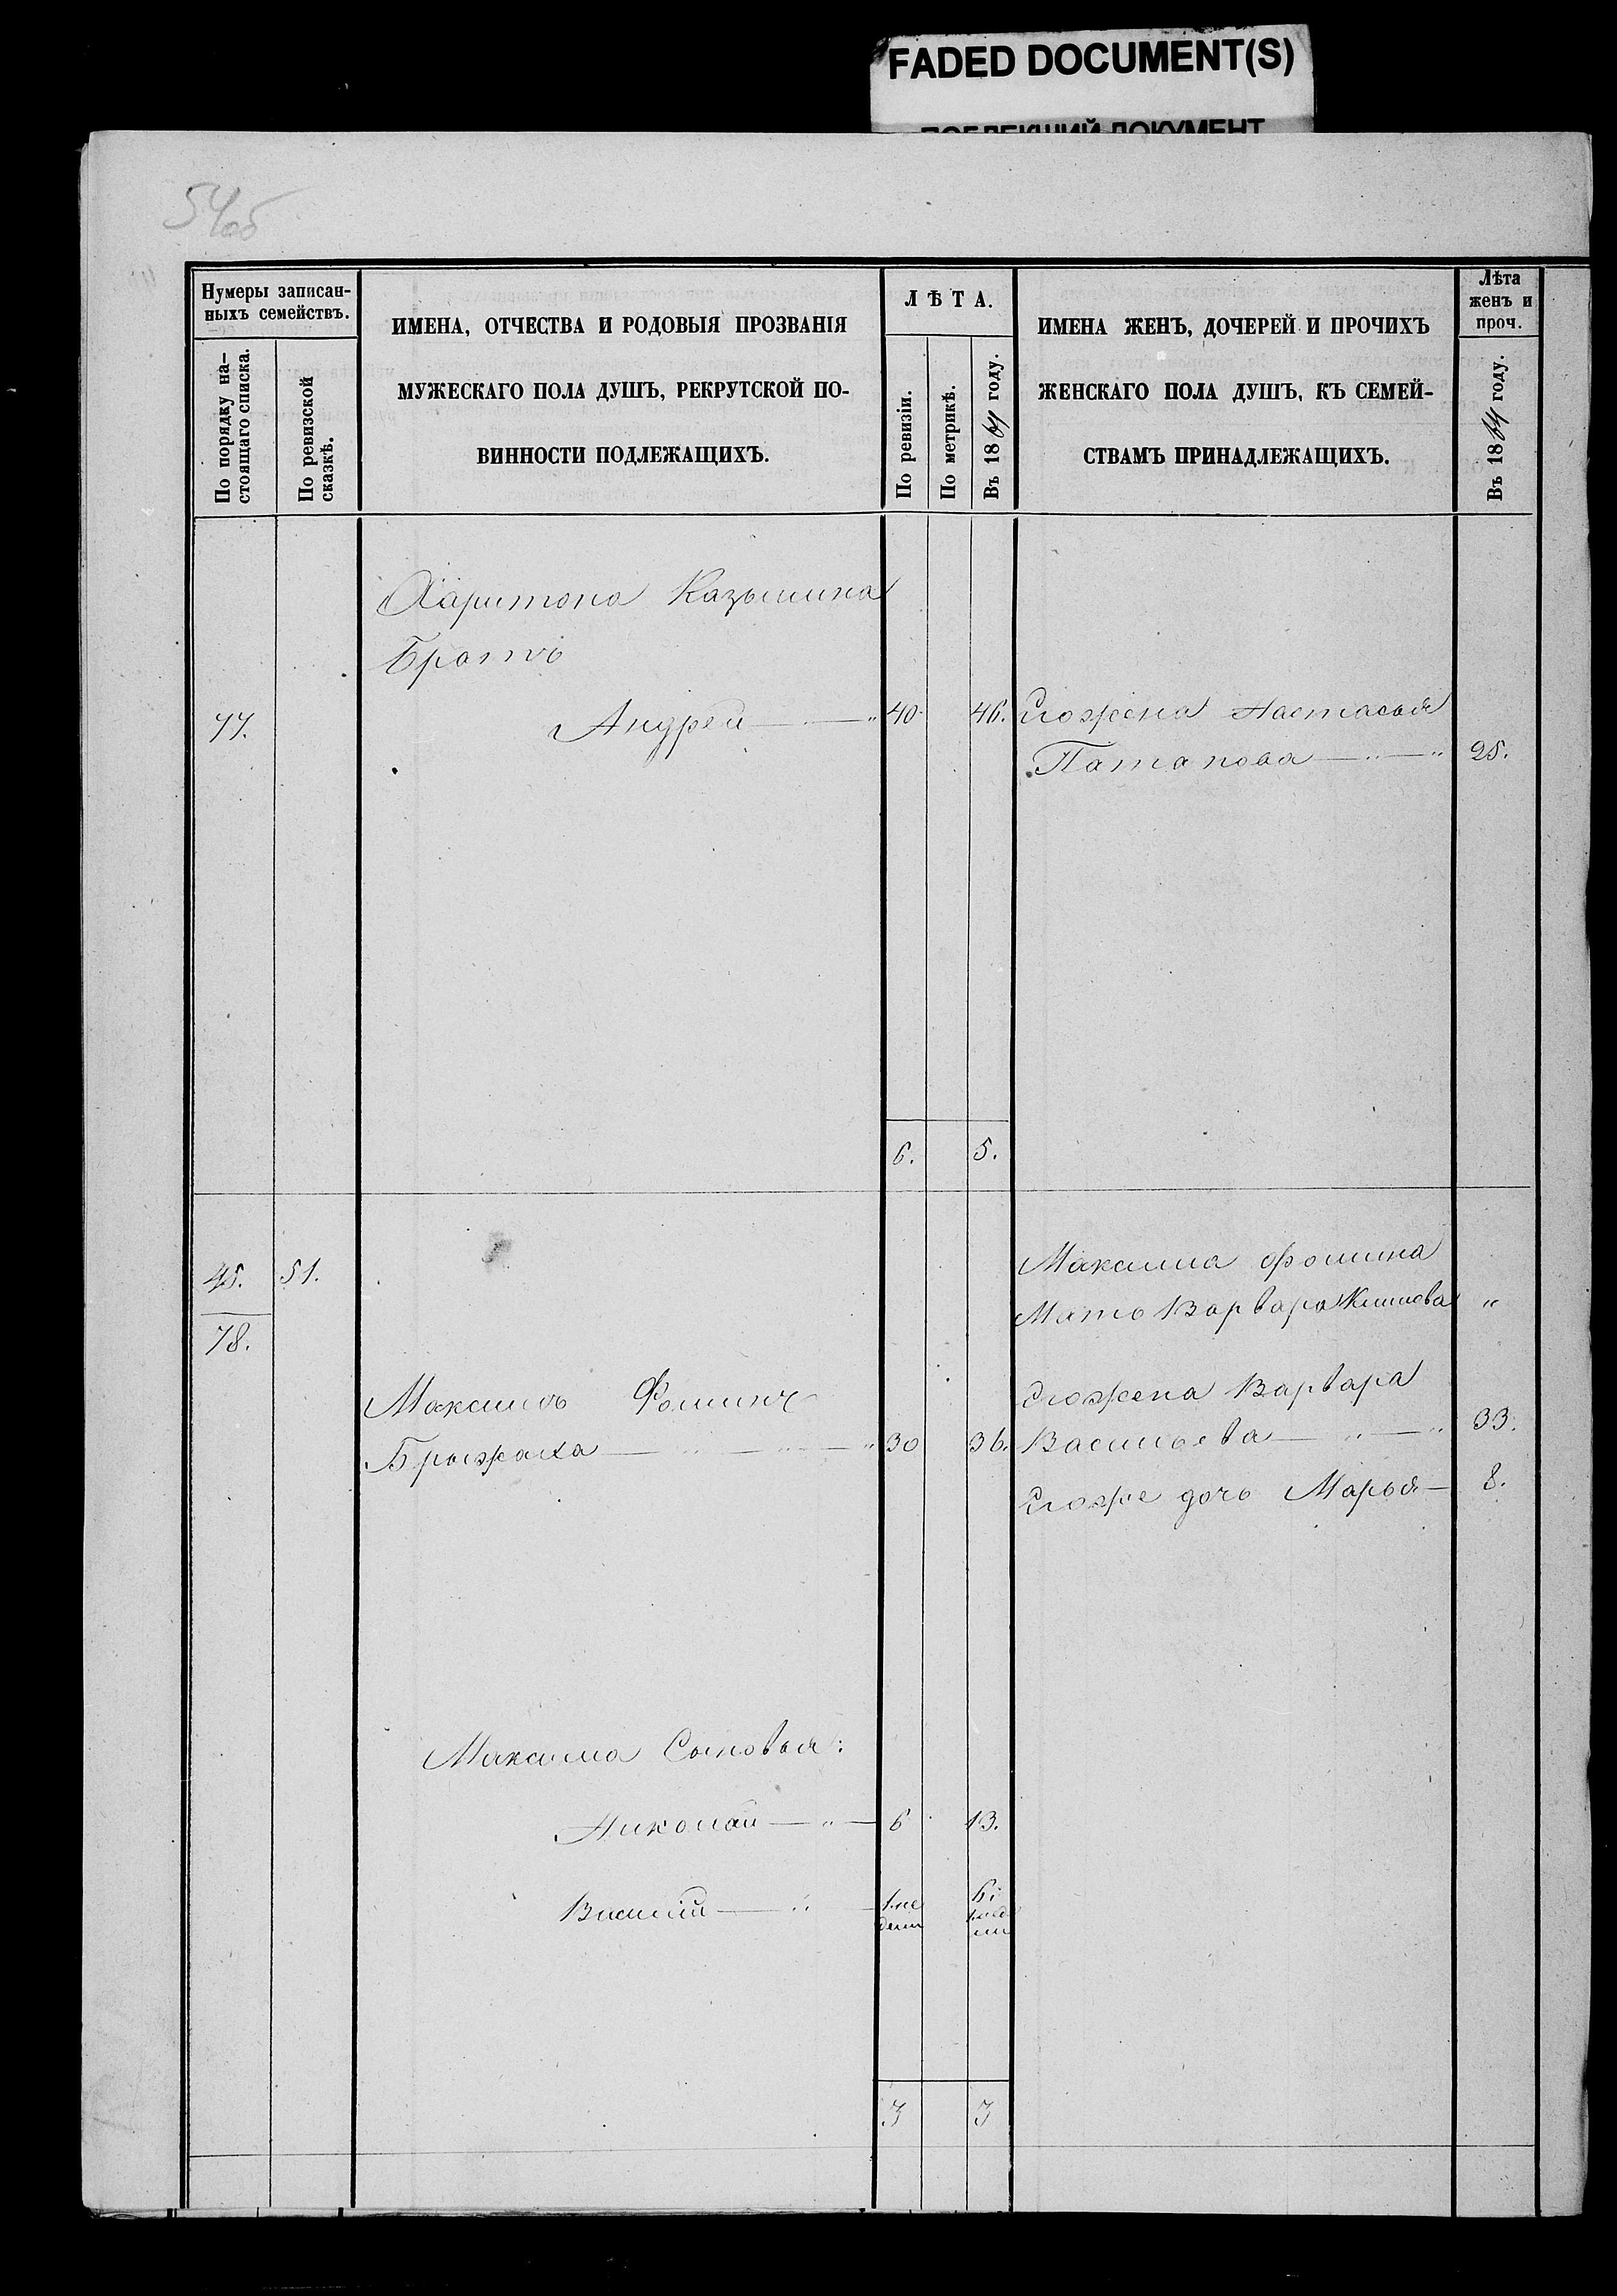 FADED DOCUMENT(S)
ПОБЛЕКШИЙ ДОКУМЕНТ
54об
Нумеры записан-
ныхъ семействъ.
По порядку на-
стоящаго списка.
По ревизской
сказкѣ.
ИМЕНА, ОТЧЕСТВА И РОДОВЫЯ ПРОЗВАНІЯ
МУЖЕСКАГО ПОЛА ДУШЪ, РЕКРУТСКОЙ ПО-
ВИННОСТИ ПОДЛЕЖАЩИХЪ.
ЛѢТА.
По ревизіи.
По метрикѣ.
Въ 1864 году.
ИМЕНА ЖЕНЪ, ДОЧЕРЕЙ И ПРОЧИХЪ
ЖЕНСКАГО ПОЛА ДУШЪ, КЪ СЕМЕЙ-
СТВАМЪ ПРИНАДЛЕЖАЩИХЪ.
Лѣта
женъ и
проч.
Въ 1864 году.
Харитона Казьмина
Братъ
77. Андрей — " 40 46. Егожена Настасья
Патапова — " — " 25.
6. 5.
45. 51. Максима Фомина
Мать Варвара "
78.
Максимъ Фоминъ Егожена Варвара
Брыжаха — " — " — " 30 36. Васильева — " — " 33.
Егоже дочь Марья — 8.
Максима Сыновья:
Николай — " — 6 13.
Василій — " — 1 не 6 и
дели 1 нед
ли
3 3